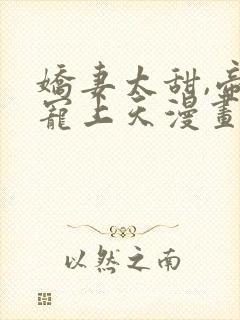 嬌妻太甜,帝
寵上天漫畫
以然之南